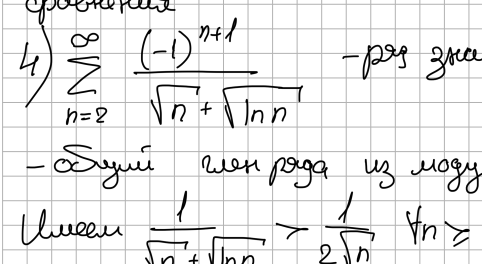 сравнения
4) \sum_{n=2}^{\infty} \frac{(-1)^{n+1}}{\sqrt{n} + \sqrt{\ln n}} - ряд зна
- общий член ряда из моду
Имеем \frac{1}{\sqrt{n} + \sqrt{\ln n}} > \frac{1}{2\sqrt{n}} ∀n ≥